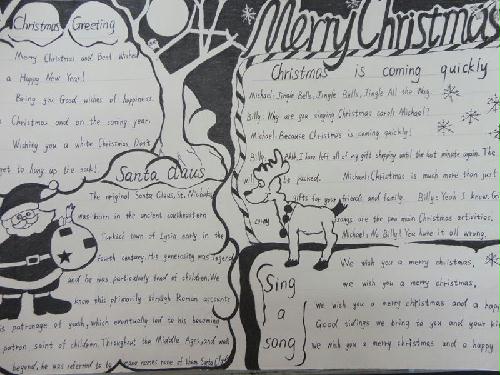 Christmas Greeting
Merry Christmas and Best wished
a Happy New Year!
Being you Good wishes of happiness.
Christmas and on the coming year.
Wishing you a white Christmas Don't
get to hang up the sock!
Santa Claus
The original Santa Claus, St. Nicholas
was born in the ancient southeastern
Turkish town of Lycia early in the
fourth century. His generosity was
and he was particularly fond of children. We
know this primarily through Roman accounts
is patronage of youth, which eventually led to his becoming
patron saint of children. Throughout the Middle Ages, and well
beyond, he was referred to by many names none of them Santa
Merry Christmas
Christmas is coming quickly
Michael: Jingle Bells, Jingle Bells, Jingle All the Way.
Billy: Why are you singing Christmas carols Michael?
Michael: Because Christmas is coming quickly!
Billy: I have left all of my gift shopping until the last minute again. The
packed. Michael: Christmas is much more than just
gifts for your friends and family. Billy: Yeah I know. Gi
songs are the two main Christmas activities.
Michael: No Billy! You have it all wrong.
Sing
a
song
We wish you a merry christmas,
we wish you a merry christmas,
we wish you a merry christmas and a happ
Good tidings we bring to you and your kin
we wish you a merry christmas and a happy